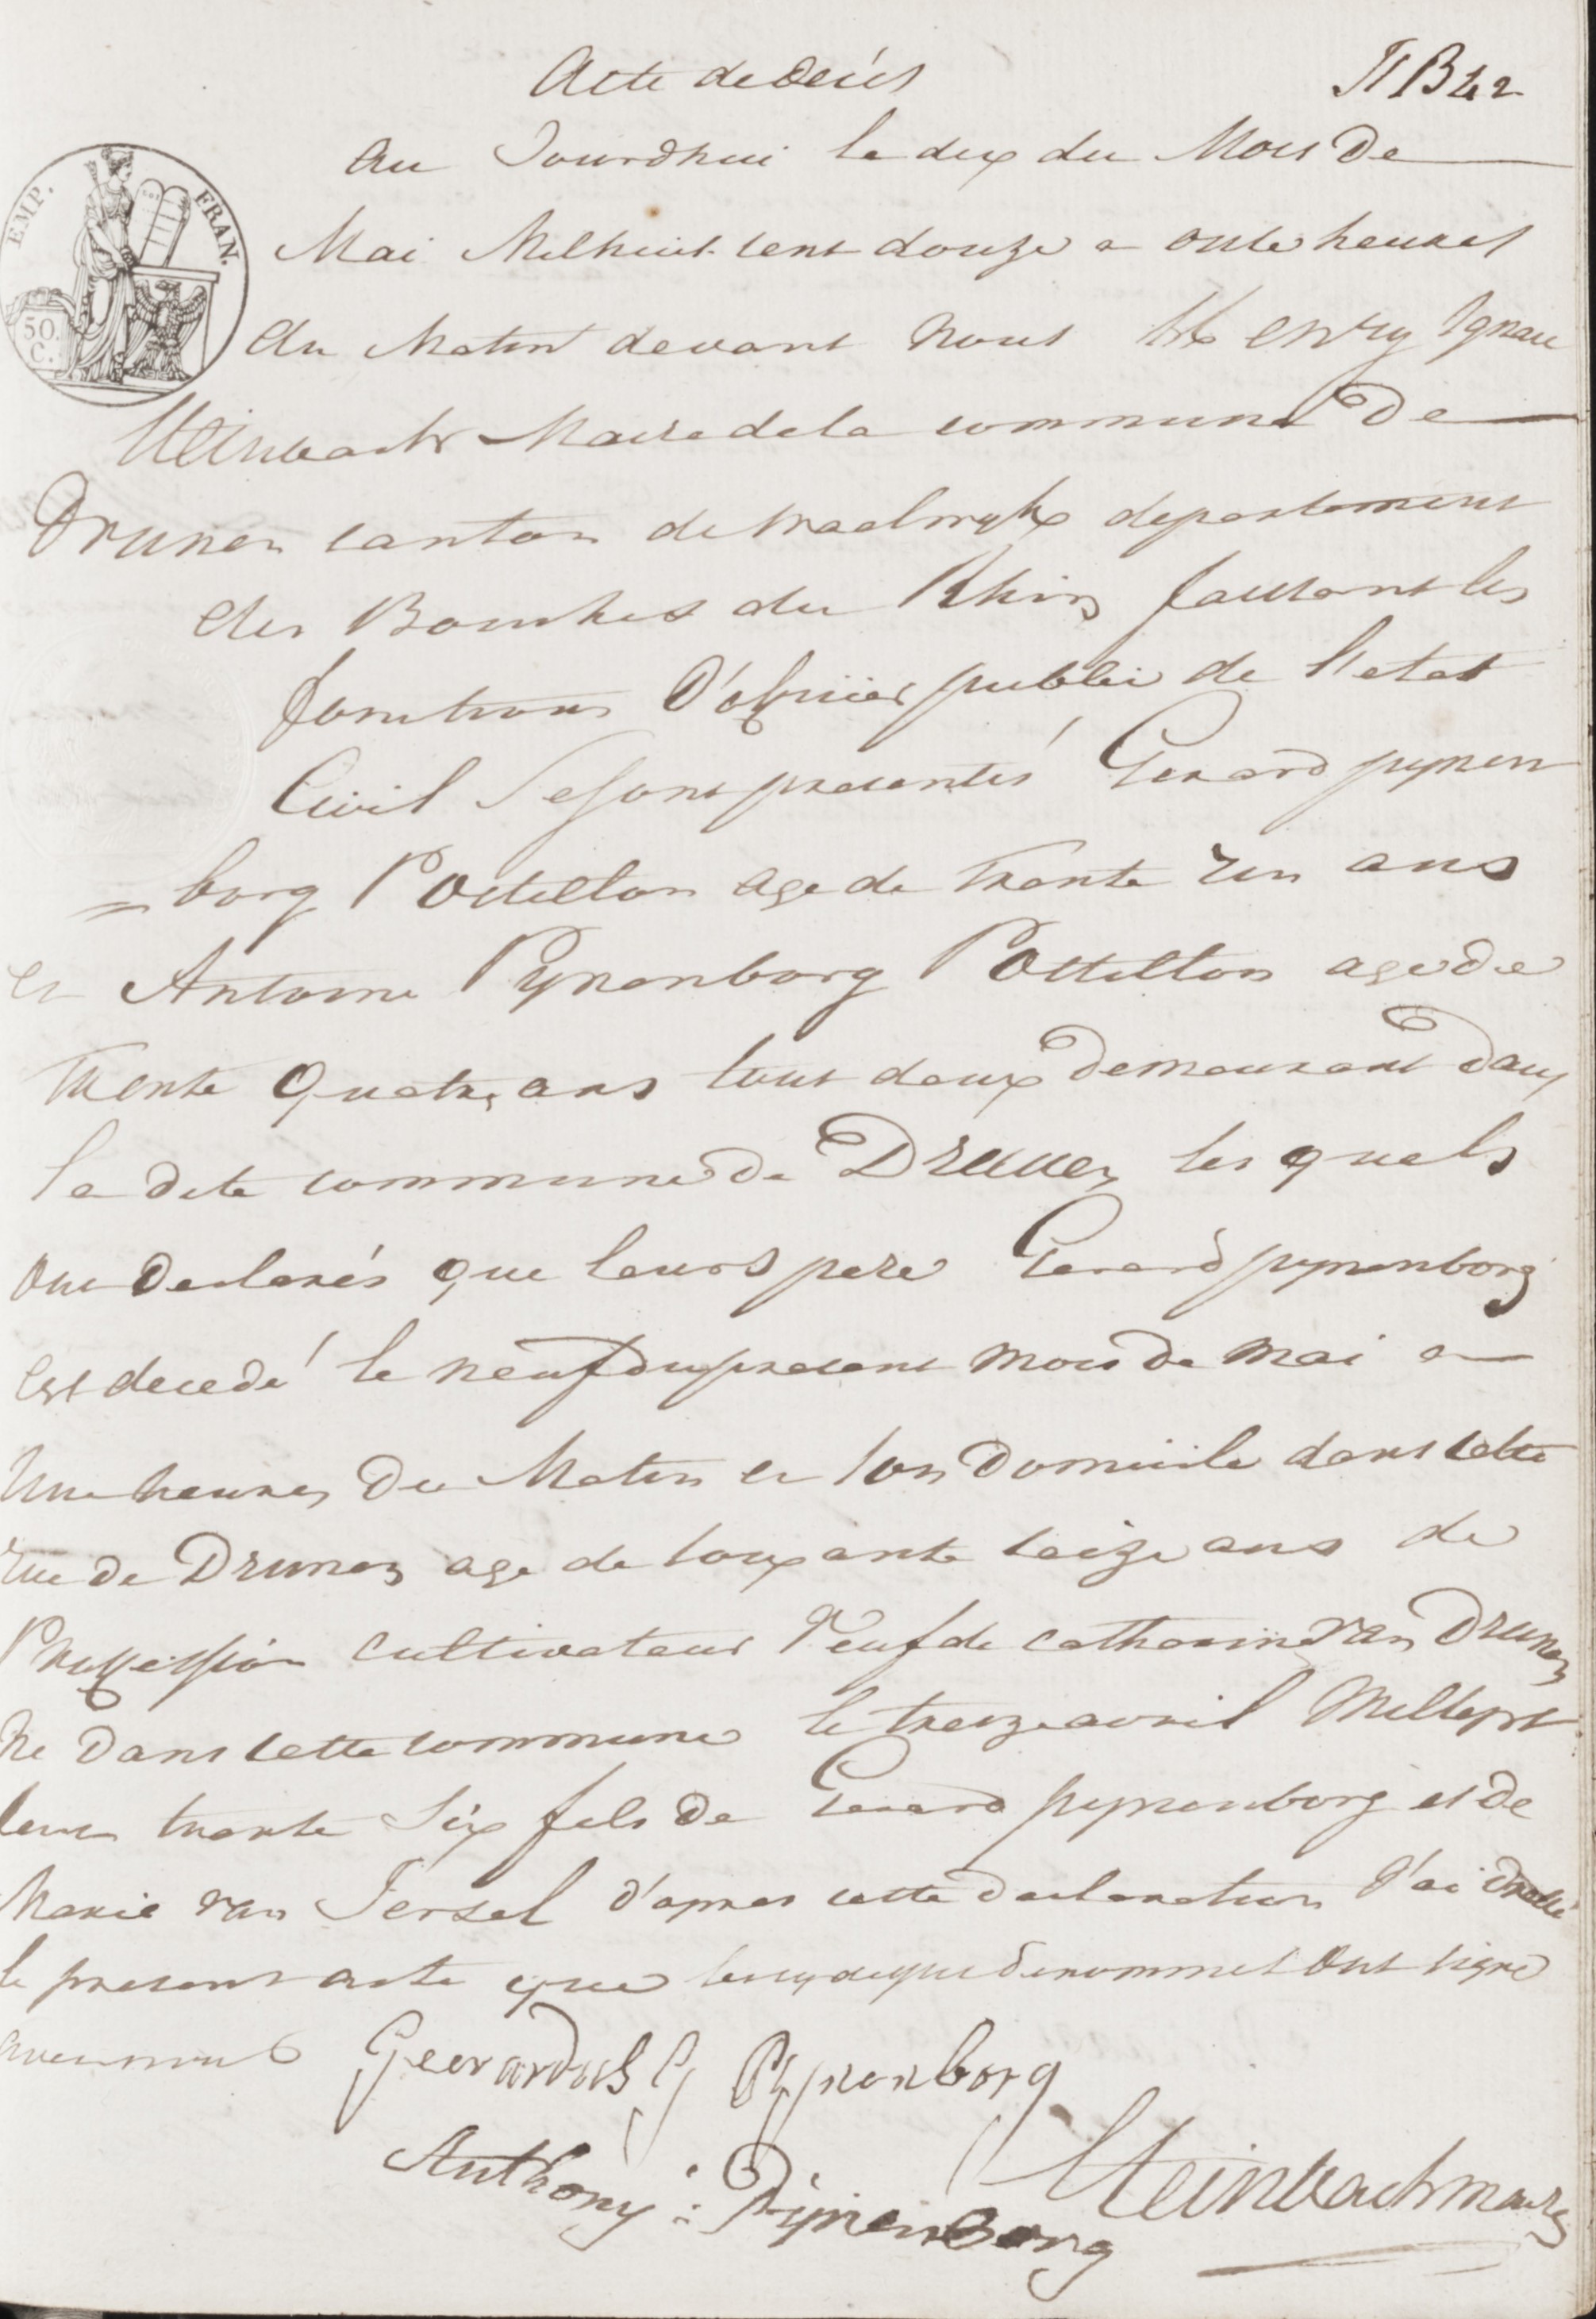 Acte de Decés
N B 42
EMP. FRAN.
50. C.
Au Jourdhui le dix du Mois De
Mai Milhuit cent douze a onse heures
du Matin devant nous Henry Ignace
Steinbach Maire de la commune De
Drunen canton de Waalwyk departement
des Bouches du Rhin faissant les
fonctions D'officier public de l'etat
Civil Se sont presentés Gerard pynen
= borg Postillon age de Trente un ans
et Antoine Pynenborg Postillon age de
Trente Quatre ans tous deux Demeurant Dans
la dite commune De Drunen les quels
ont Declarés que leurs pere Gerard pynenborg
est decedé le neuf du present mois de mai a
Une heures Du Matin en son Domicile dans cette
rue de Drunen age de soixante seize ans de
Proffession cultivateur Veuf de catharine van Drunen
Né Dans cette commune le treize avril Milsept
cent trente six fils de Gerard pynenborg et de
Marie van Iersel d'apres cette declaration J'ai Dressé
le present acte que les denommes ont signé
avec nous Geerardus G Pynenborg
Anthony : Pijnenborg
Steinbach maire